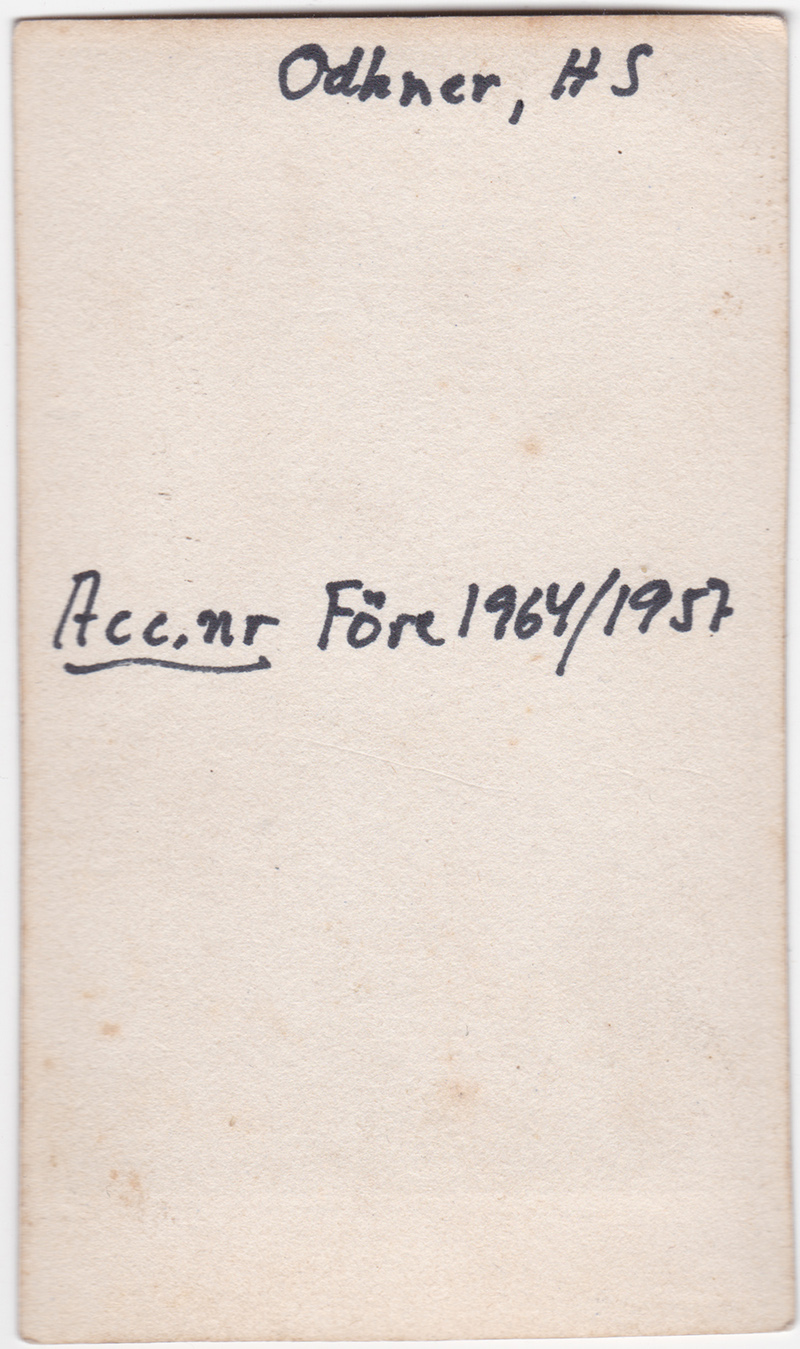 Odhner, H S
Acc.nr Före 1964/1957